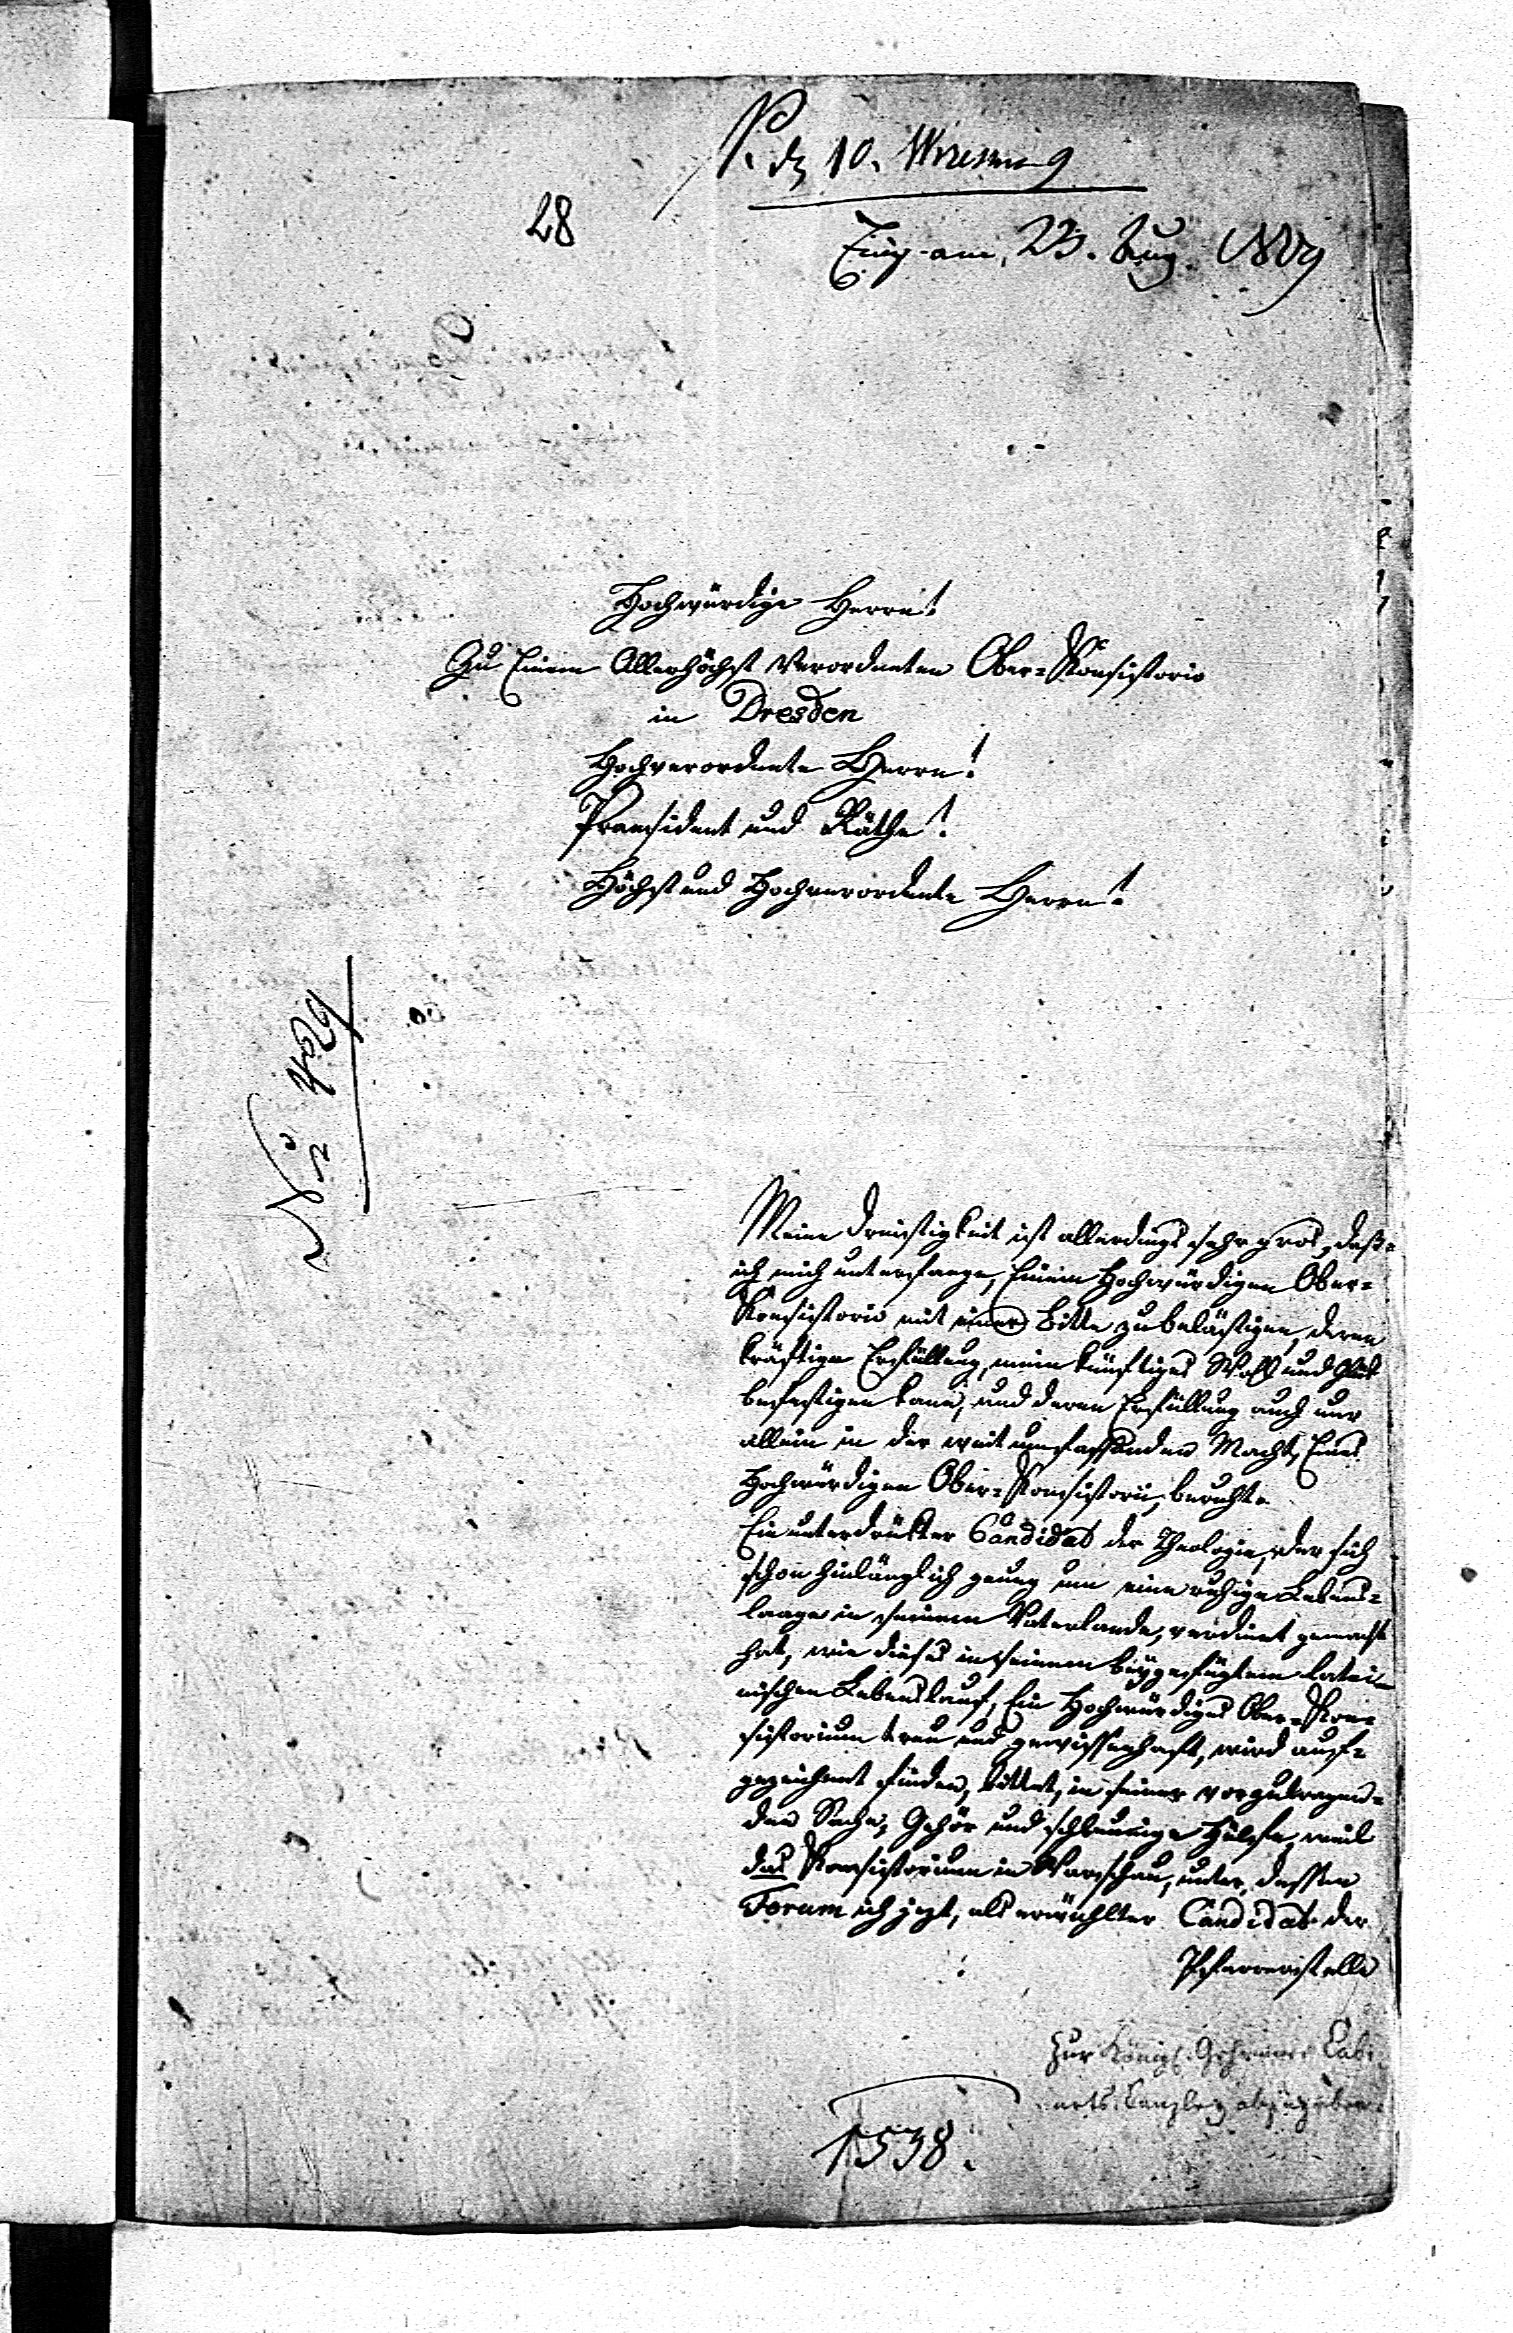 P. d. 10. Wrzesnia
28
Eing. am, 23. Aug. 1809
Hochwürdige Herrn!
Zu Einem Allerhöchst Verordneten Ober=Konsistorio
in Dresden
Hochverordnete Herrn!
Praesident und Räthe!
Höchst und Hochverordnete Herrn!
No 429
Meine Dreistigkeit ist allerdings sehr gros, daß
ich mich unterfange, Einem Hochwürdigen Ober=
Konsistorio mit einer Bitte zu belästigen, deren
kräftige Erfüllung, mein künftiges Wohl und Glük
befestigen kann, und deren Erfüllung auch nur
allein in der weit umfassenden Macht, Eines
Hochwürdigen Ober=Konsistorii, beruht.
Ein unterdrükter Candidat der Theologie, der sich
schon hinlänglich genug um eine ruhige Lebens=
laage in seinem Vaterlande, verdient gemacht
hat, wie dieses in seinem beygefügten latei=
nischen Lebenslauf, Ein Hochwürdiges Ober=Kon=
sistorium treu und gewissenhaft, wird auf=
gezeichnet finden, bittet, in seiner vorzutragen=
den Sache, Gehör und schleunige Hülfe, weil
das Konsistorium in Warschau, unter dessen
Forum ich jezt, als erwählter Candidat der
Pfarrerstelle
Zur Königl. Geheimen Cabi-
nets Canzley abzugeben.
1538.